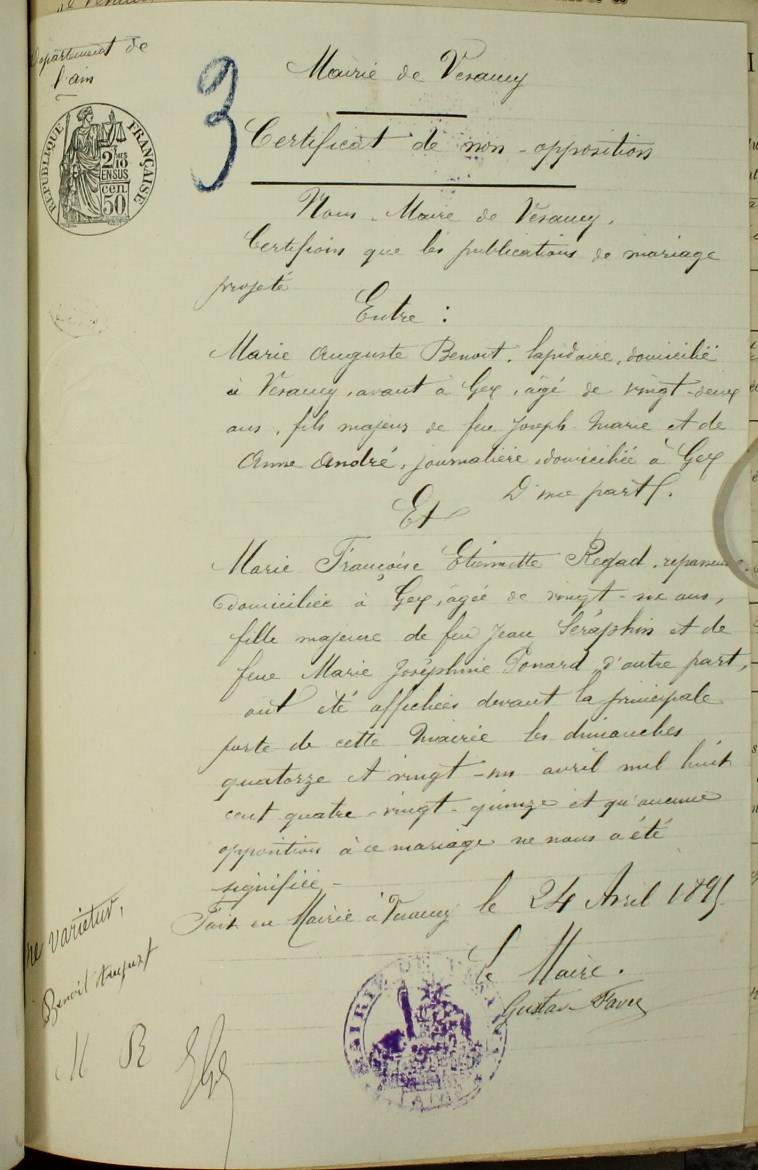 Département de
l'ain
RÉPUBLIQUE FRANÇAISE
2/10mes
EN SUS
cen.
50
3
Mairie de Vesancy
Certificat de non-opposition
Nous Maire de Vesancy,
Certifions que les publications de mariage
projeté
Entre :
Marie Auguste Benoit, lapidaire, domicilié
à Vesancy, avant à Gex, âgé de vingt-deux
ans, fils majeur de feu Joseph Marie et de
Anne André, journalière, domiciliée à Gex
D'une part.
Et
Marie Françoise Etiennette Regad, repasseuse,
domiciliée à Gex, âgée de vingt-un ans,
fille majeure de feu Jean Séraphin et de
feue Marie Joséphine Ponard, d'autre part,
ont été affichées devant la principale
porte de cette Mairie les dimanches
quatorze et vingt-un avril mil huit
cent quatre-vingt-quinze et qu'aucune
opposition à ce mariage ne nous a été
signifiée.
Fait en Mairie à Vesancy le 24 Avril 1895
Le Maire.
Gustave
ne varietur,
Benoit August
M R
MAIRIE DE